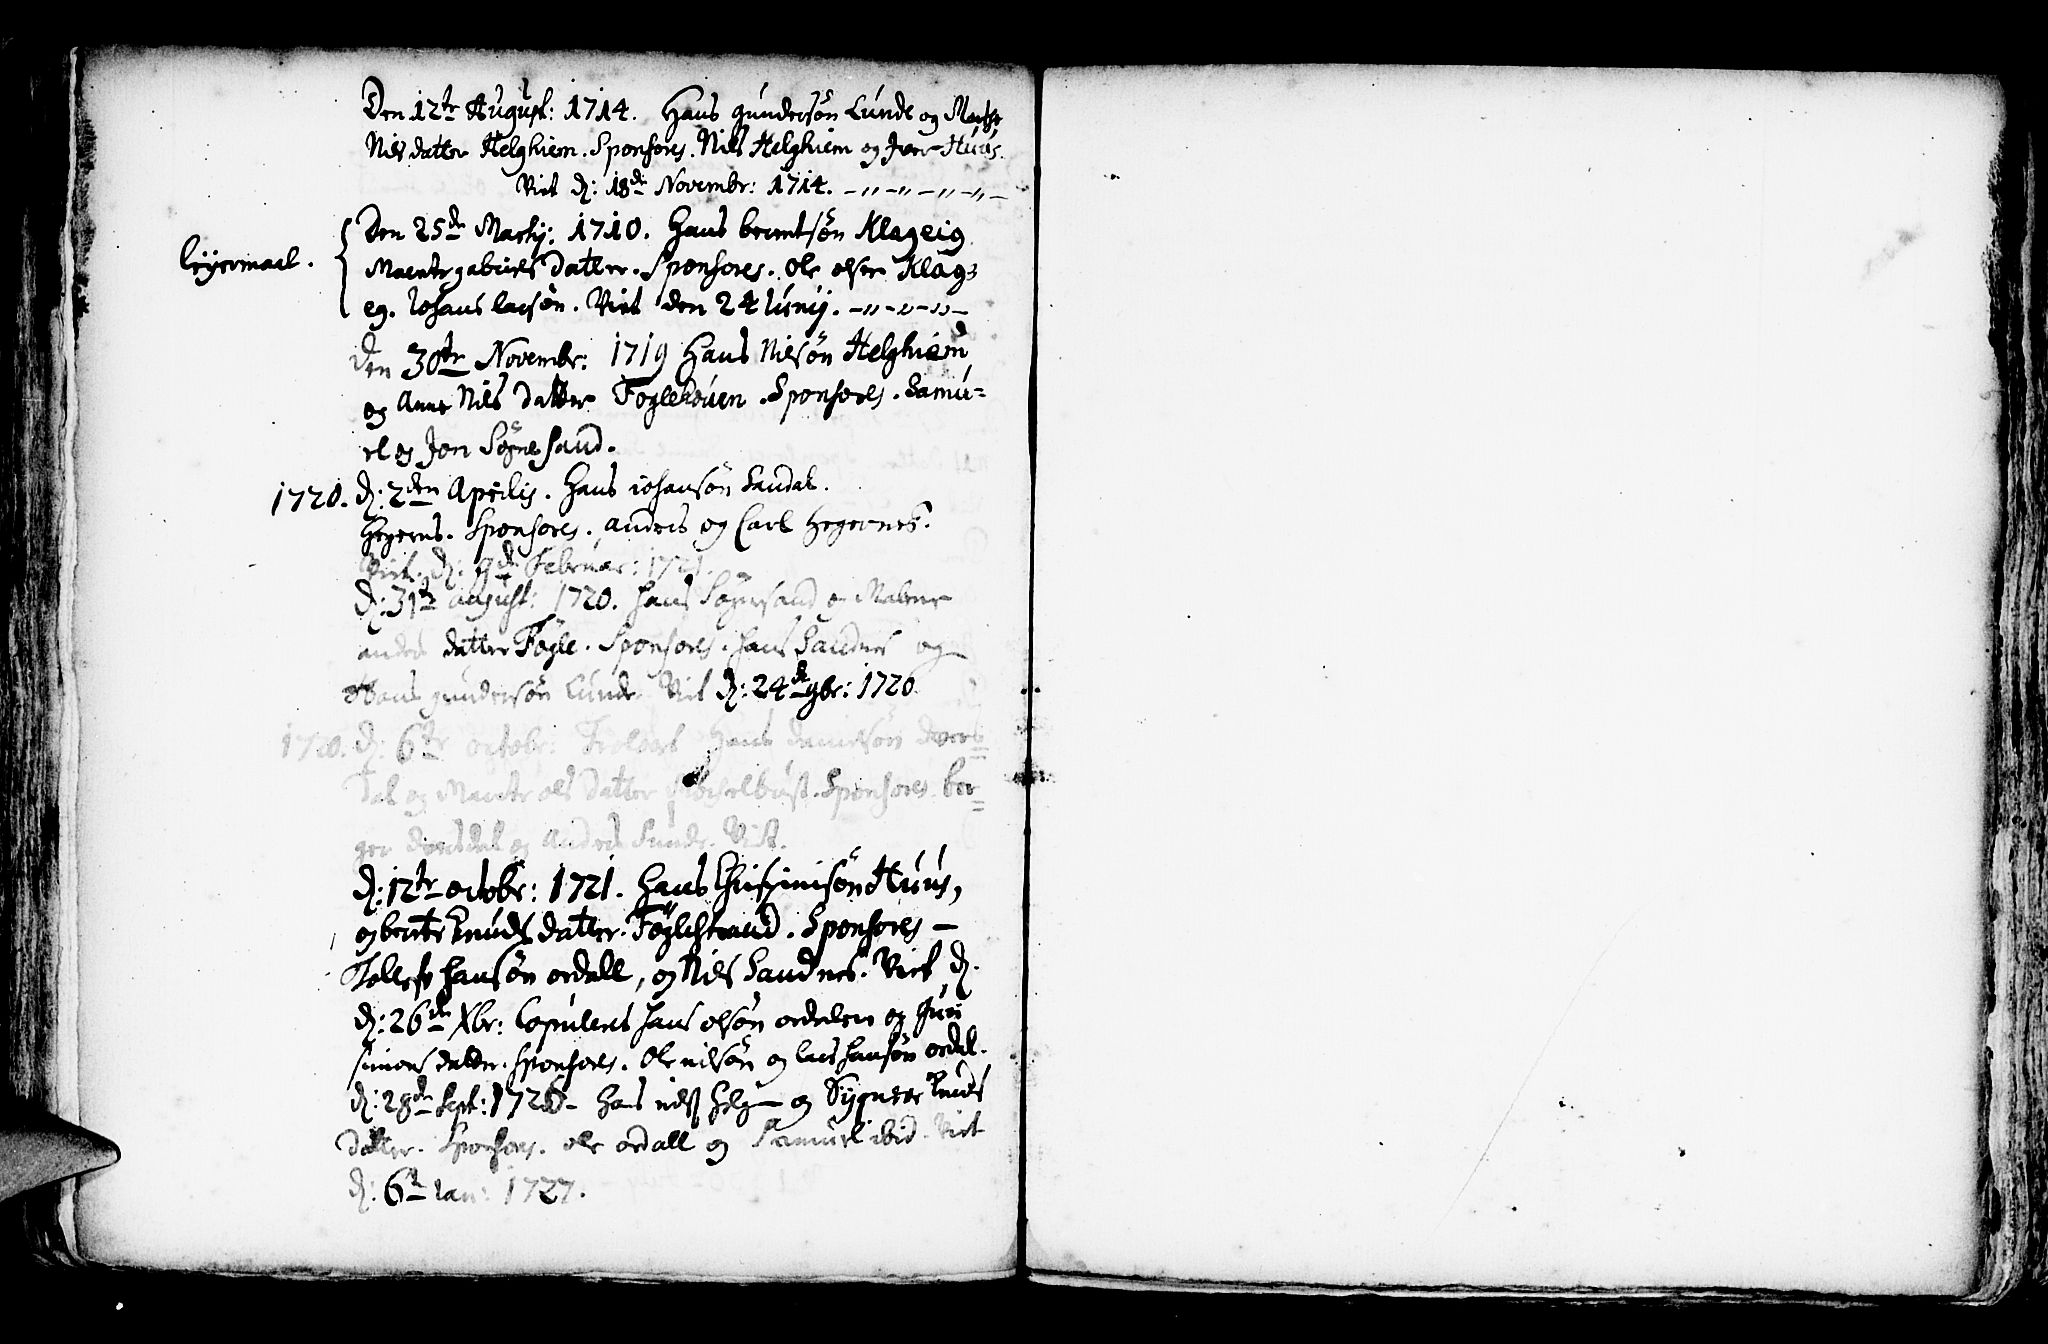 Den 12te August: 1714. Hans gundersön Lunde og Marthe
Nils datter Helghiem. Sponsores. Nils Helghiem og Jver Húús.
Viet d: 18de Novembr: 1714. -"-"-"-"-
Leyermaal. Den 25de Martij: 1710. Hans berentsön Klageig
Marite gabriels datter. Sponsores. Ole olsen Klag=
eg. Johans larsön. Viet den 24 Junij. -"-"-"-
den 30te Novembr: 1719 Hans Nilsön Helghiem
og Anne Nils datter Foglehoúen. Sponsores. Samú=
el og Jon Sögnesand.
1720. d: 2den Aprilis. Hans iohansön Sandal.
Hegernes. Sponsores. anders og Carl Hegernes.
Viet. d: 9de Februar: 1721.
d: 31te august: 1720. Hans Sögnesand og Malene
anders datter Fögle. Sponsores. Hans Sandnes og
Hans gundersön Lunde. Viet d: 24de 9br: 1720.
1720. d: 6te octobr: Hans danielsön dvers=
dal og Marite ols datter Sponsores. ber=
ger dversdal og Anders Sunde. Viet.
d: 12te octobr: 1721. Hans Christensön Húús,
og berte Knúds datter Föglestrand. Sponsores -
Tollef hansön ordall, og Nils Sandnes. Viet d.
d: 26de Xbr: Copuleres hans olsön ordalen og
simons datter. Sponsores. Ole nilsön og lars hansön ordal.
d: 28de Sept: 1726 - Hans nilss Helg- og Sygneve Knuds
datter. Sponsores. ole ordall og Samuel ibid. Viet
d: 6te Jan: 1727.